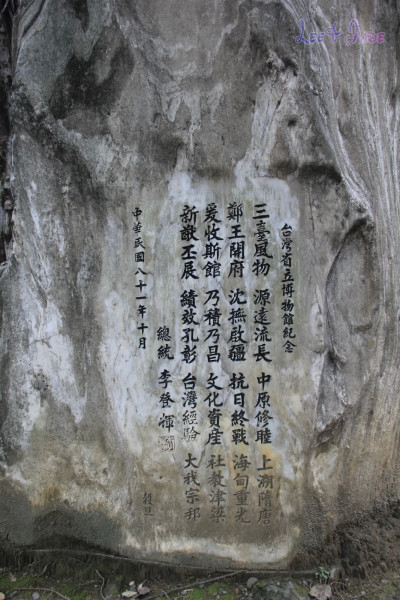 LEE & JADE
台灣省立博物館紀念
三臺風物 源遠流長 中原修睦 上溯隋唐
鄭王開府 沈撫啟疆 抗日終戰 海甸重光
爰收斯館 乃積乃昌 文化資產 社教津梁
新猷丕展 績效孔彰 台灣經驗 大我宗邦
總統 李登輝
中華民國八十一年十月